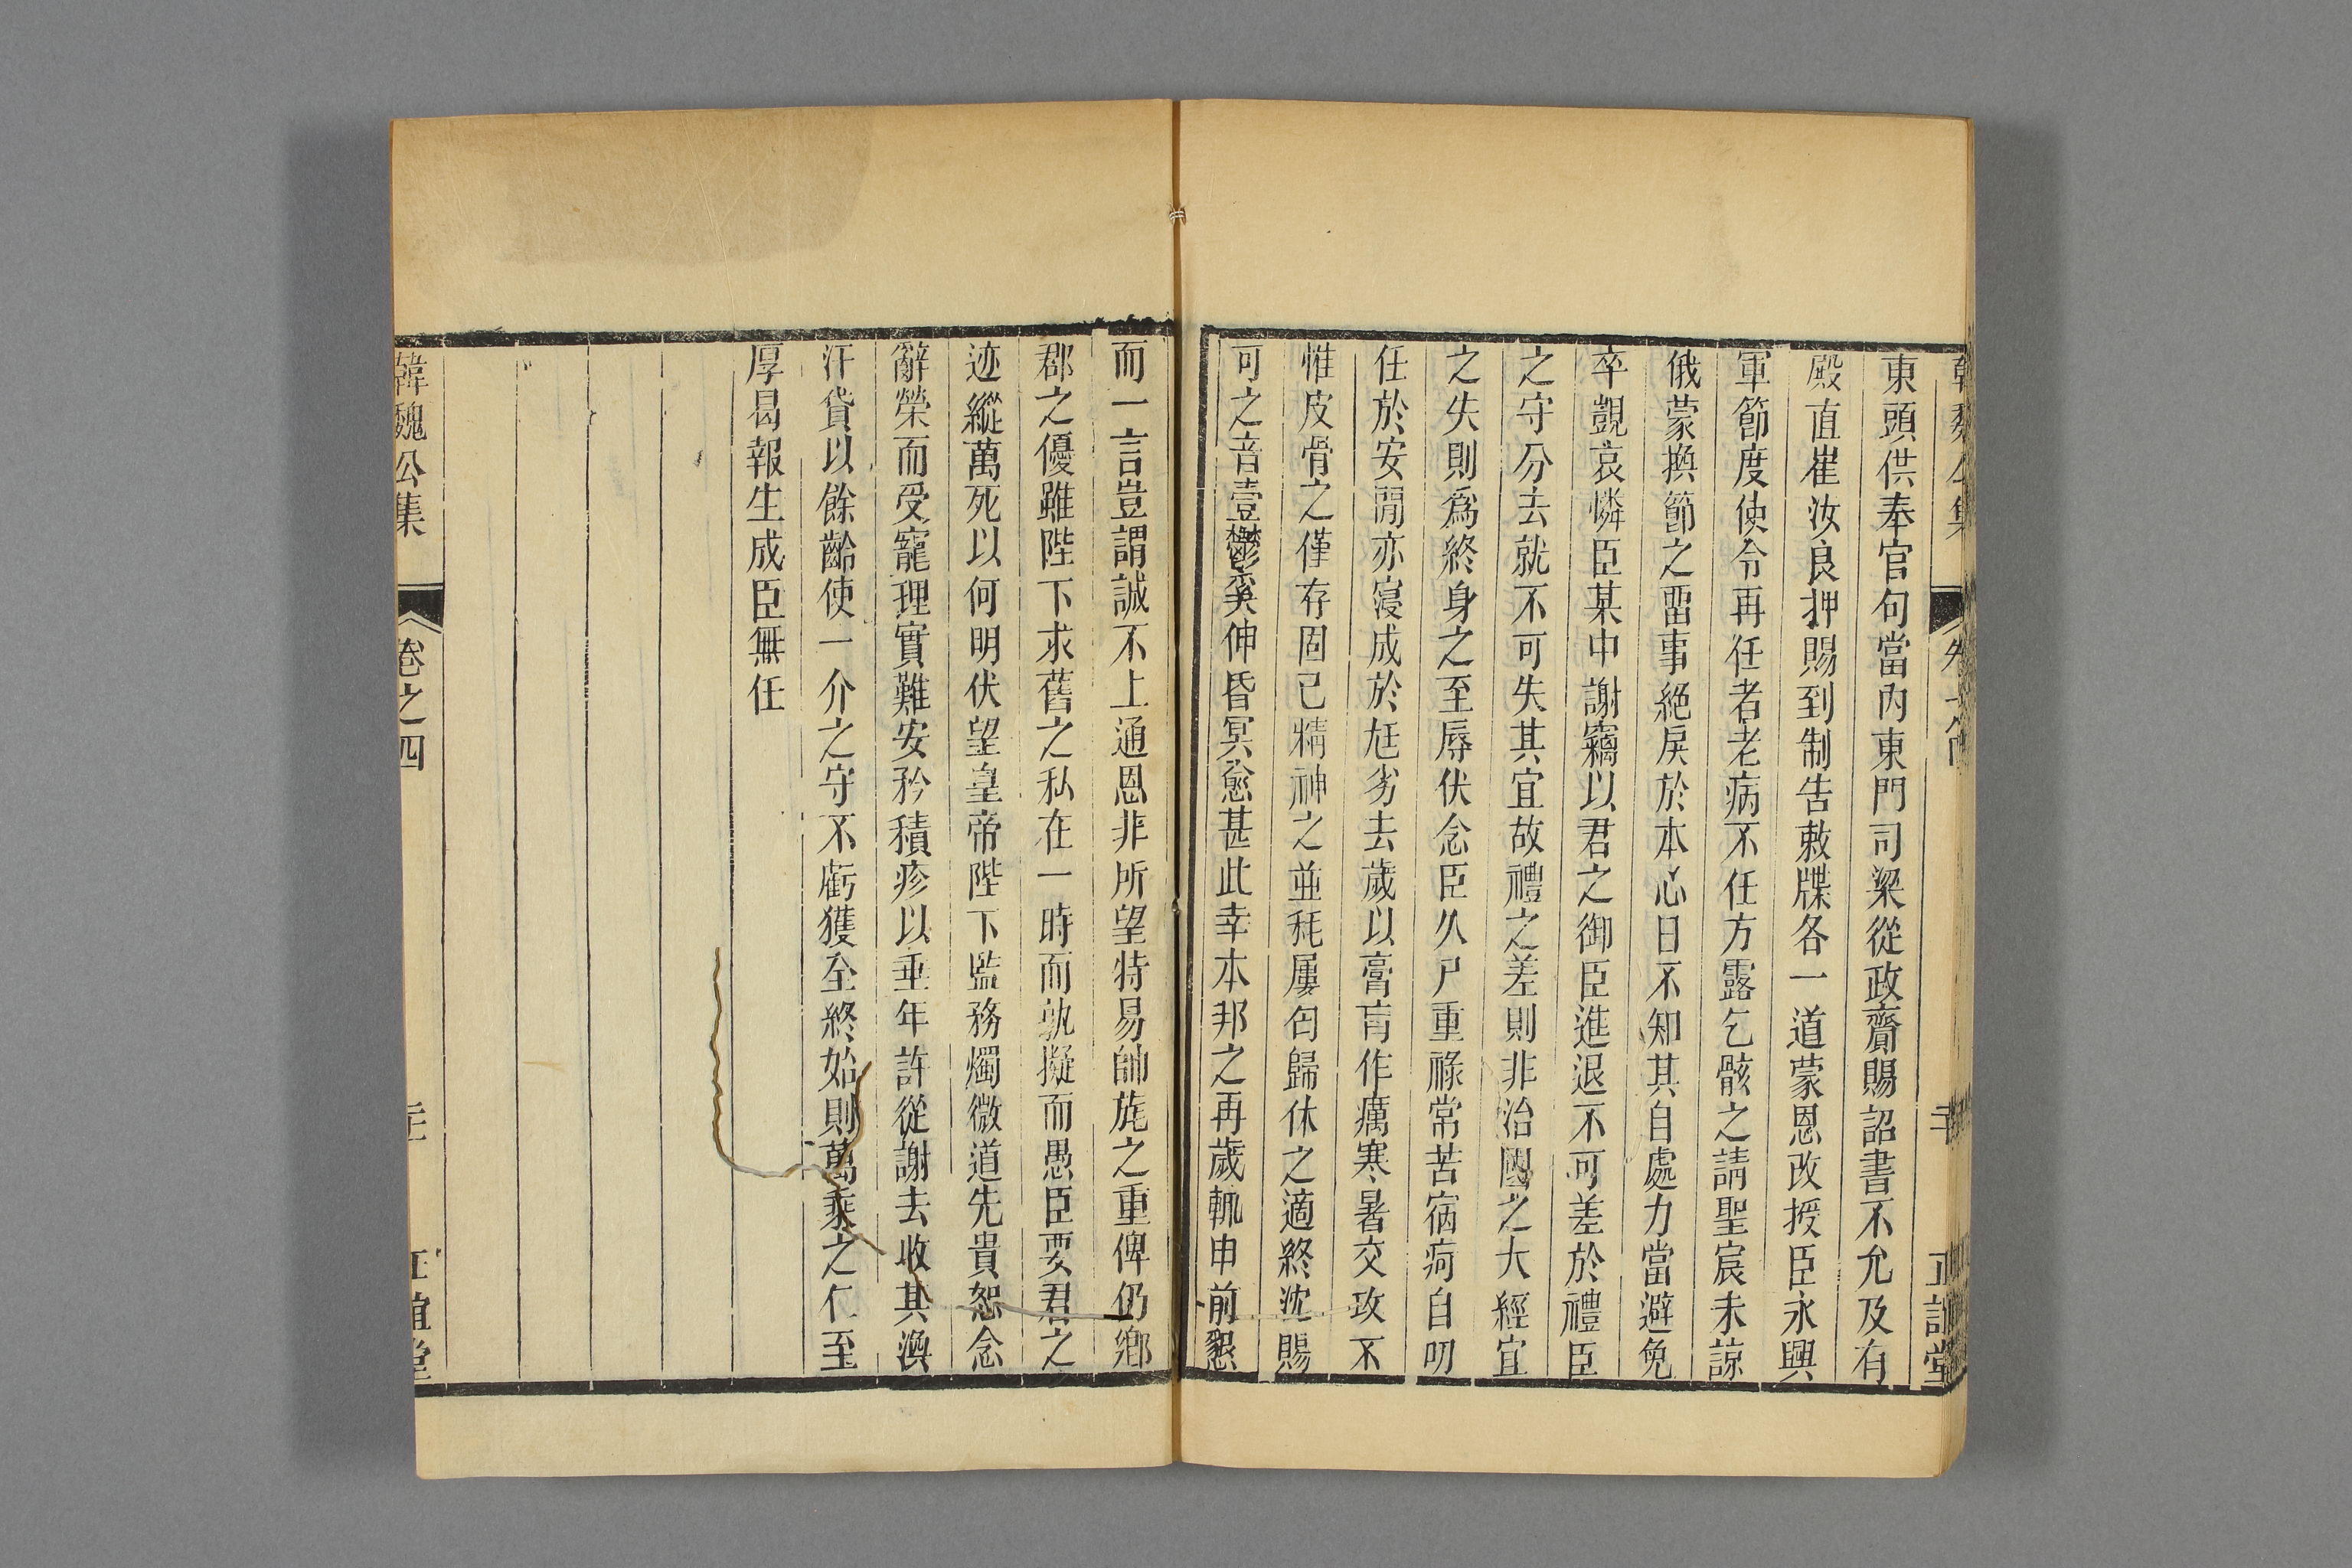 東頭供奉官句當內東門司梁從政齎賜詔書不允及有
殿直崔汝良押賜到制告敕牒各一道蒙恩改授臣永興
軍節度使令再任者老病不任方露乞骸之請聖宸未諒
俄蒙換節之畱事絕戾於本心日不知其自處力當避免
卒覬哀憐臣某中謝竊以君之御臣進退不可差於禮臣
之守分去就不可失其宜故禮之差則非治國之大經宜
之失則爲終身之至辱伏念臣久尸重祿常苦宿疴自叨
任於安閒亦寖成於尪劣去歲以膏肓作癘寒暑交攻不
惟皮骨之僅存固已精神之並耗屢匄歸休之適終沈賜
可之音壹鬱奚伸昏冥愈甚此幸本邦之再歲輒申前懇
而一言豈謂誠不上通恩非所望特易帥旄之重俾仍鄉
郡之優雖陛下求舊之私在一時而孰擬而愚臣要君之
迹縱萬死以何明伏望皇帝陛下監務燭微道先貴恕念
辭榮而受寵理實難安矜積疹以垂年許從謝去收其渙
汗貸以餘齡使一介之守不虧獲全終始則萬乘之仁至
厚曷報生成臣無任
韓魏公集
卷之四